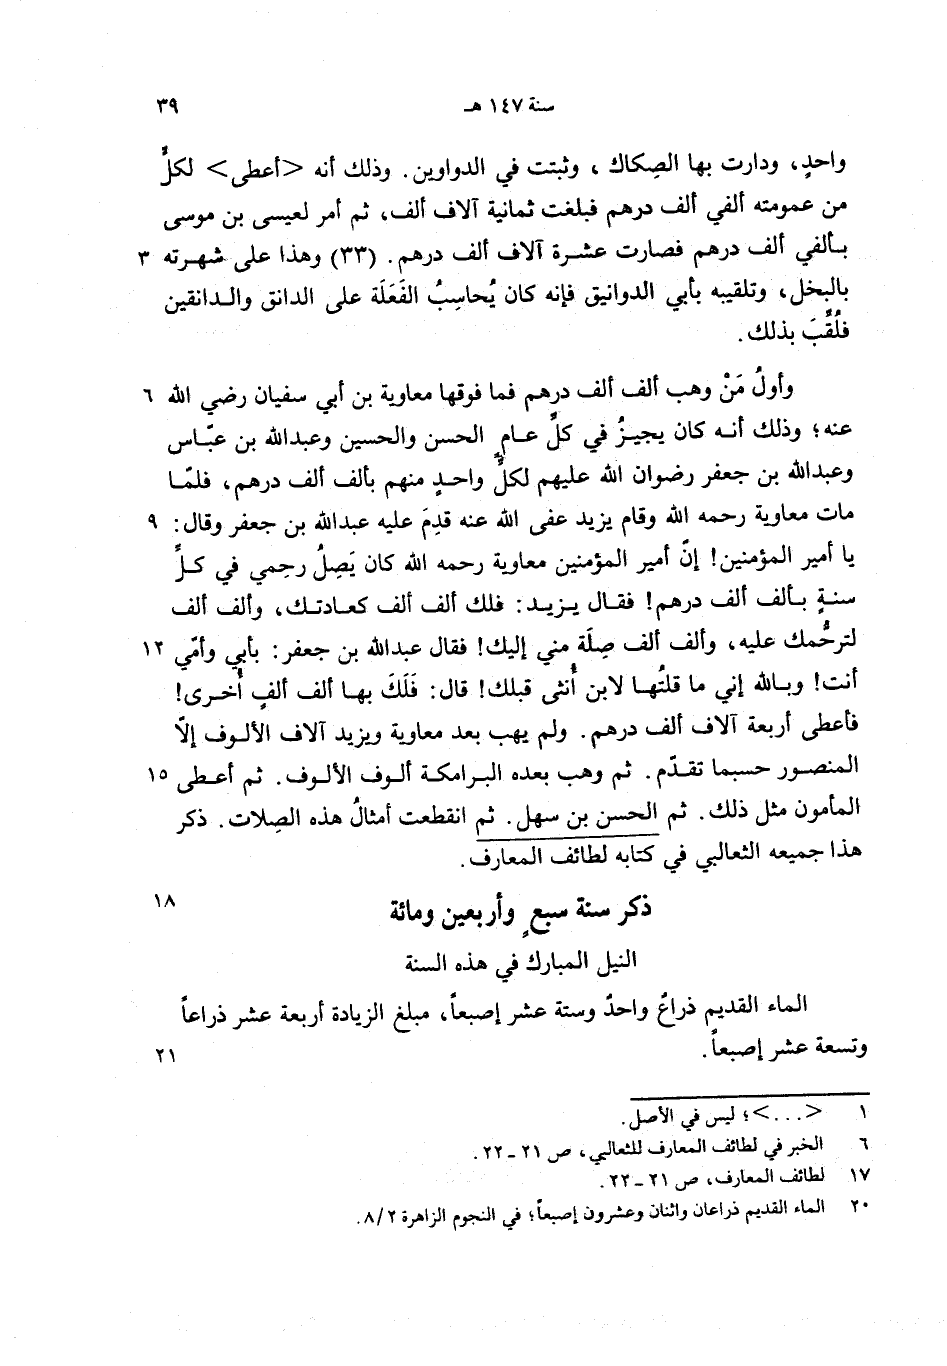 سنة ١٤٧ هـ ٣٩
واحدٍ، ودارت بها الصِكاك ، وثبتت في الدواوين. وذلك أنه <أعطى> لكلٍّ
من عمومته ألفي ألف درهم فبلغت ثمانية آلاف ألف، ثم أمر لعيسى بن موسى
بألفي ألف درهم فصارت عشرة آلاف ألف درهم. (٣٣) وهذا على شهرته ٣
بالبخل، وتلقيبه بأبي الدوانيق فإنه كان يُحاسِبُ الفَعَلَة على الدانق والدانقين
فلُقِّبَ بذلك.
وأولُ مَنْ وهب ألف ألف درهم فما فوقها معاوية بن أبي سفيان رضي الله ٦
عنه؛ وذلك أنه كان يجيزُ في كلِّ عامٍ الحسن والحسين وعبدالله بن عبّاس
وعبدالله بن جعفر رضوان الله عليهم لكلٍّ واحدٍ منهم بألف ألف درهم، فلمّا
مات معاوية رحمه الله وقام يزيد عفى الله عنه قدِمَ عليه عبدالله بن جعفر وقال: ٩
يا أمير المؤمنين! إنّ أمير المؤمنين معاوية رحمه الله كان يَصِلُ رحِمي في كلِّ
سنةٍ بألف ألف درهم! فقال يزيد: فلك ألف ألف كعادتك، وألف ألف
لترحُّمك عليه، وألف ألف صِلَة مني إليك! فقال عبدالله بن جعفر: بأبي وأمّي ١٢
أنت! وبالله إني ما قلتُها لابن أُنثى قبلك! قال: فَلَكَ بها ألف ألفٍ أُخرى!
فأعطى أربعة آلاف ألف درهم. ولم يهب بعد معاوية ويزيد آلاف الألوف إلّا
المنصور حسبما تقدّم. ثم وهب بعده البرامكة ألوف الألوف. ثم أعطى ١٥
المأمون مثل ذلك. ثم الحسن بن سهل. ثم انقطعت أمثالُ هذه الصِلات. ذكر
هذا جميعه الثعالبي في كتابه لطائف المعارف.
ذكر سنة سبعٍ وأربعين ومائة ١٨
النيل المبارك في هذه السنة
الماء القديم ذراعٌ واحدٌ وستة عشر إصبعاً، مبلغ الزيادة أربعة عشر ذراعاً
وتسعة عشر إصبعاً. ٢١
١ <...>؛ ليس في الأصل.
٦ الخبر في لطائف المعارف للثعالبي، ص ٢١ ــ ٢٢.
١٧ لطائف المعارف، ص ٢١ ــ ٢٢.
٢٠ الماء القديم ذراعان واثنان وعشرون إصبعاً؛ في النجوم الزاهرة ٨/٢.